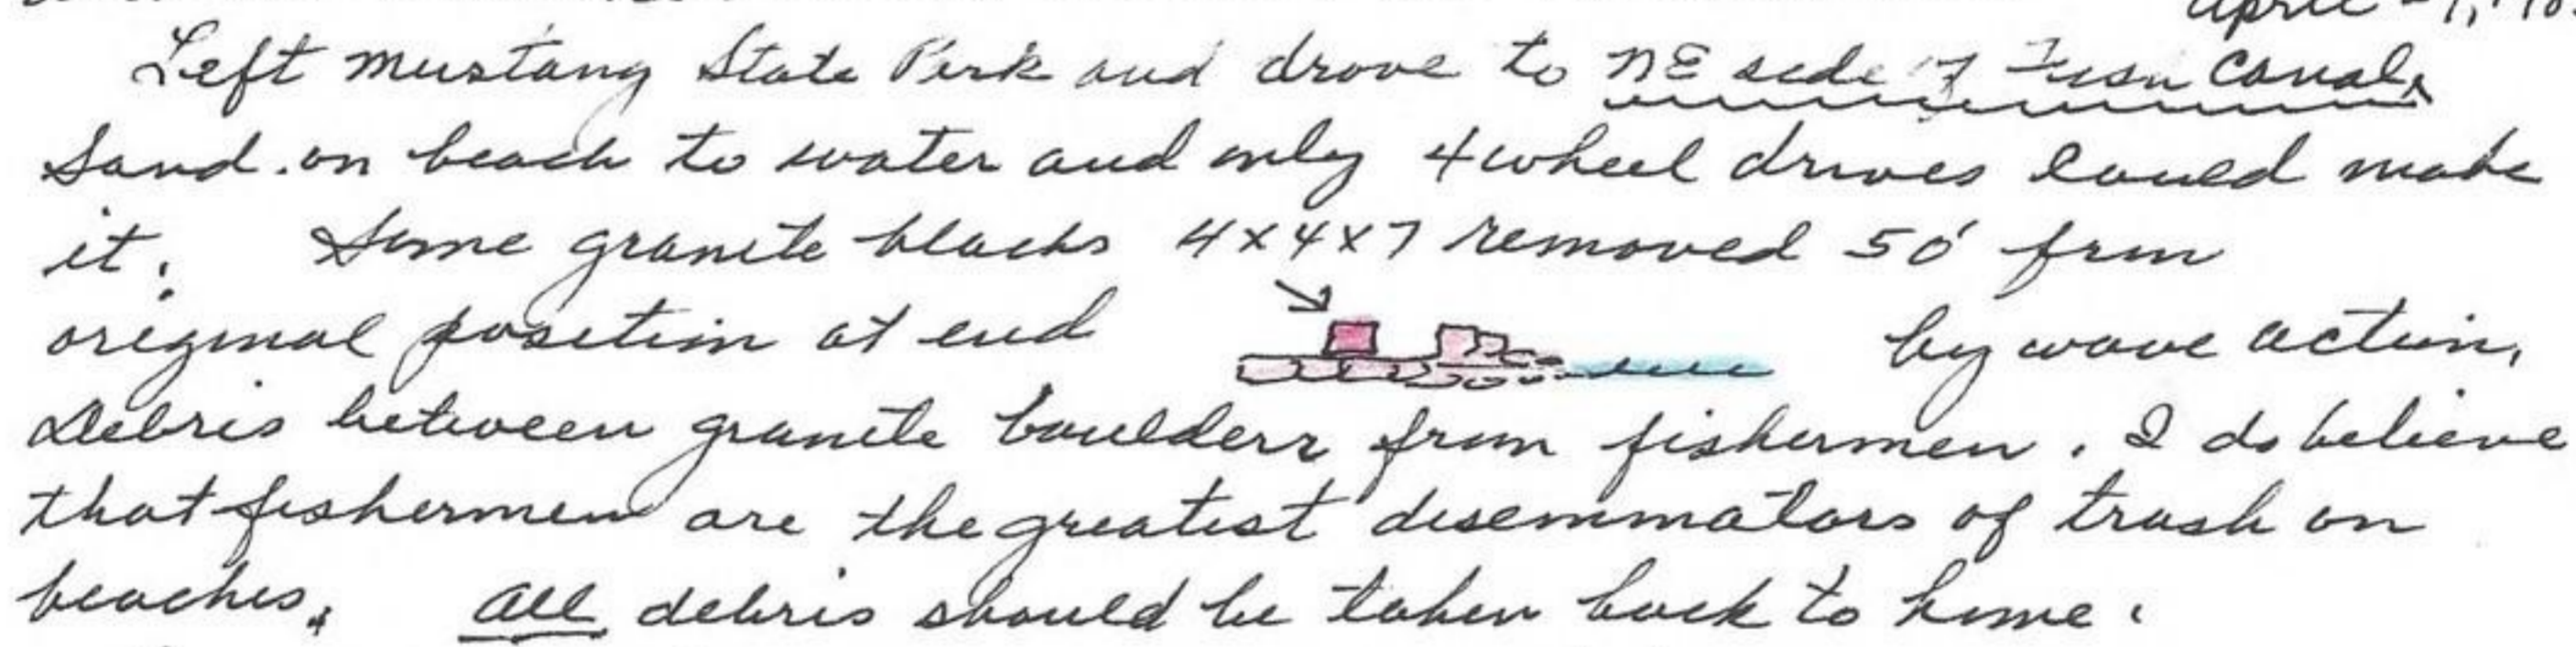 April
Left Mustang State Park and drove to NE side of canal.
Sand on beach to water and only 4 wheel drives could make
it. Some granite blocks 4x4x7 removed 50' from
original position at end by wave action.
Debris between granite boulders from fishermen. I do believe
that fishermen are the greatest diseminators of trash on
beaches. All debris should be taken back to home.